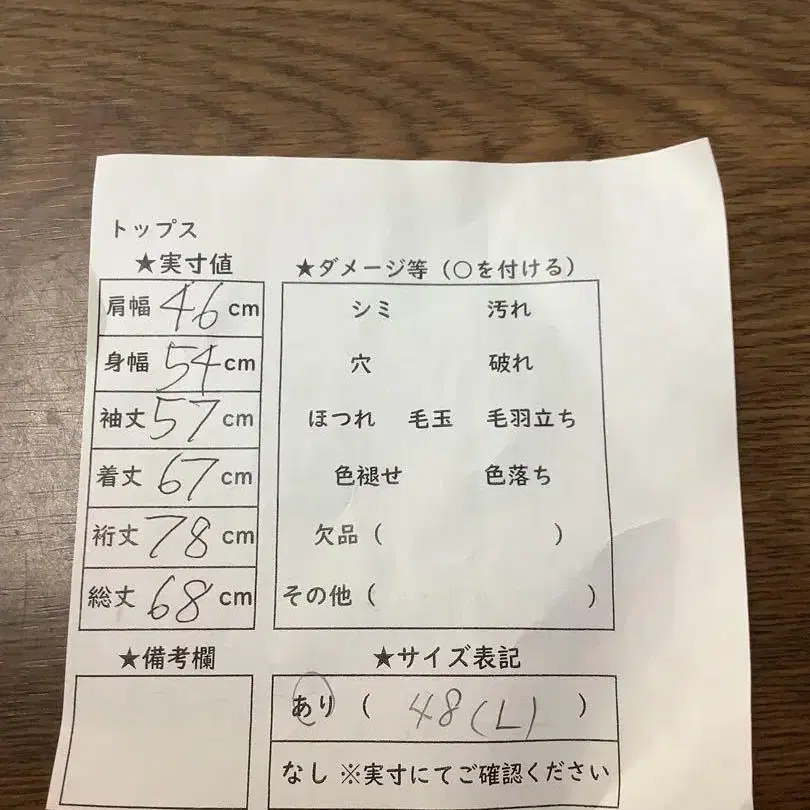 トップス
★実寸値
肩幅 46 cm
身幅 54 cm
袖丈 57 cm
着丈 67 cm
裄丈 78 cm
総丈 68 cm
★ダメージ等（○を付ける）
シミ 汚れ
穴 破れ
ほつれ 毛玉 毛羽立ち
色褪せ 色落ち
欠品（ ）
その他（ ）
★備考欄
★サイズ表記
あり（ 48(L) ）
なし ※実寸にてご確認ください